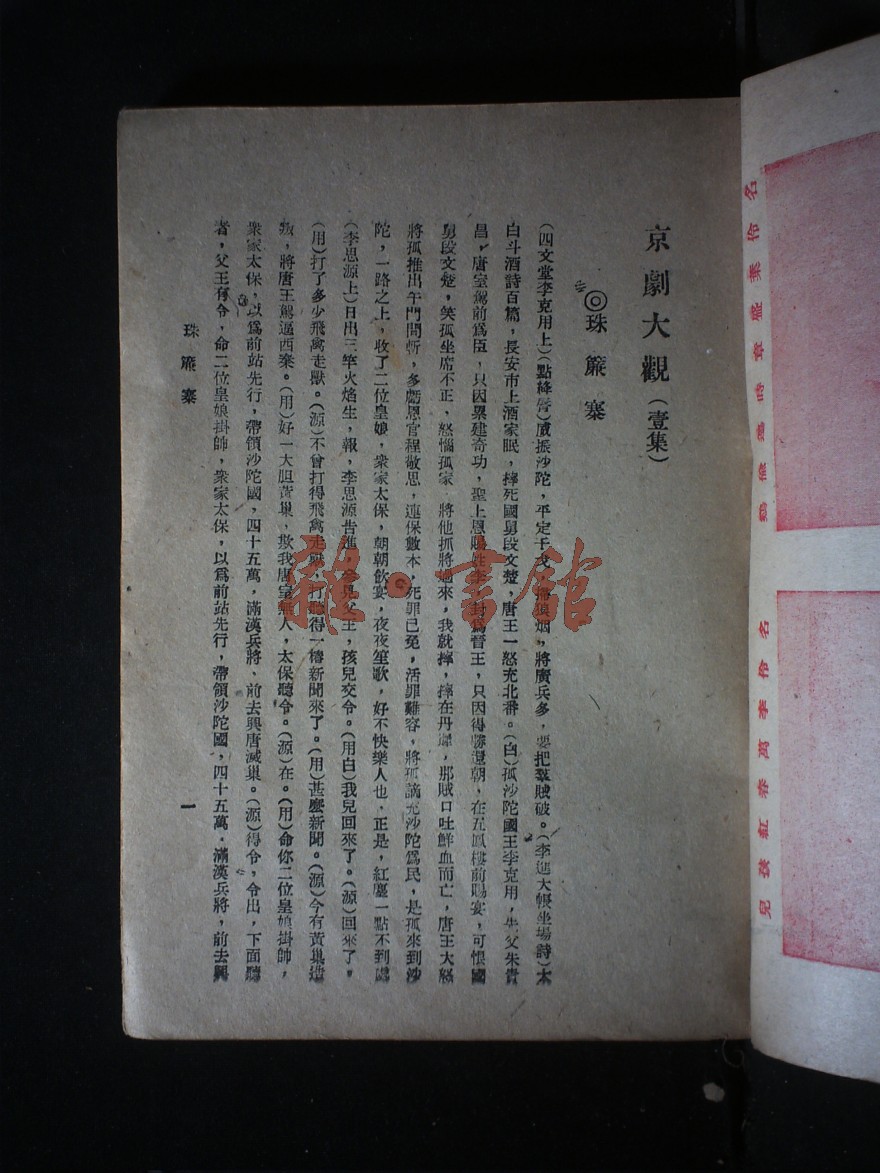 京劇大觀(壹集)
◎珠簾寨
(四文堂李克用上)(點絳唇)威振沙陀，平定干戈，掃狼烟，將廣兵多，要把羣賊破。(李進大帳坐場詩)太
白斗酒詩百篇，長安市上酒家眠，摔死國舅段文楚，唐王一怒充北番。(白)孤沙陀國王李克用，先父朱貴
昌，唐室駕前爲臣，只因累建奇功，聖上恩賜姓李，封爲晉王，只因得勝還朝，在五鳳樓前賜宴，可恨國
舅段文楚，笑孤坐席不正，怒惱孤家，將他抓將過來，我就摔，摔在丹墀，那賊口吐鮮血而亡，唐王大怒
將孤推出午門問斬，多虧恩官程敬思，連保數本，死罪已免，活罪難容，將孤謫充沙陀爲民，是孤來到沙
陀，一路之上，收了二位皇娘，衆家太保，朝朝飲宴，夜夜笙歌，好不快樂人也，正是，紅塵一點不到處
(李思源上)日出三竿火焰生，報，李思源告進，參見父王，孩兒交令。(用白)我兒回來了。(源)回來了。
(用)打了多少飛禽走獸。(源)不曾打得飛禽走獸，打聽得一樁新聞來了。(用)甚麼新聞。(源)今有黃巢造
叛，將唐王駕逼西秦。(用)好一大胆黃巢，欺我唐室無人，太保聽令。(源)在。(用)命你二位皇娘掛帥，
衆家太保，以爲前站先行，帶領沙陀國，四十五萬，滿漢兵將、前去興唐滅巢。(源)得令，令出，下面聽
者，父王有令，命二位皇娘掛帥，衆家太保，以爲前站先行，帶領沙陀國，四十五萬，滿漢兵將，前去興
珠簾寨
一
雜·書館
名伶李萬春紅孩兒